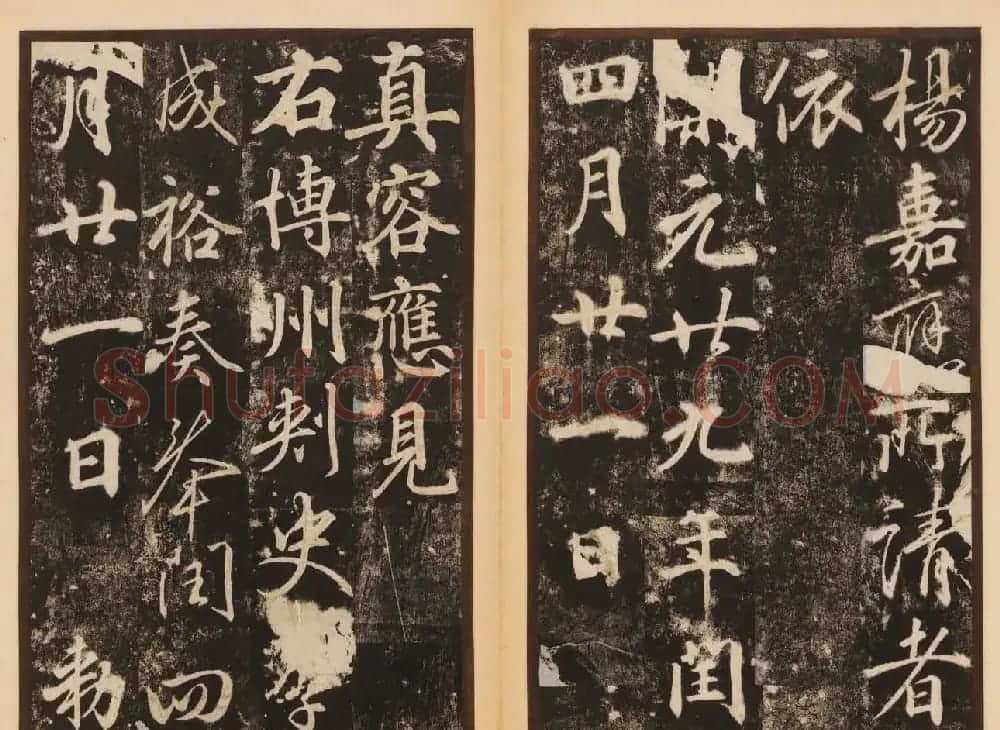 楊嘉應所請者
依
開元廿九年閏
四月廿一日
真容應見
右博州刺史李
成裕奏奉閏四
月廿一日勅
Shufaziliao.COM